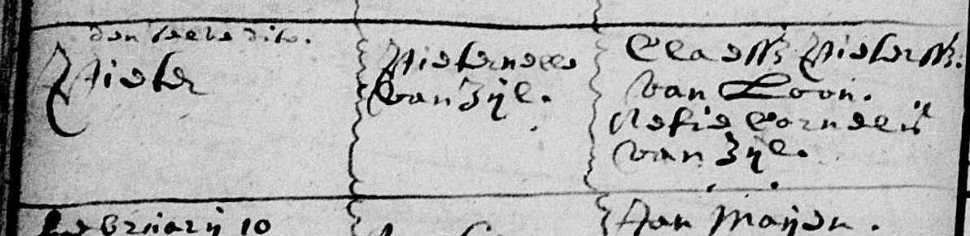 den selve dito.
Pieter
Pieternelle
van Zijl.
Claess Pieterss.
van Loon.
Aefie Cornelis
van Zijl.
February 10
Jan Maijen.